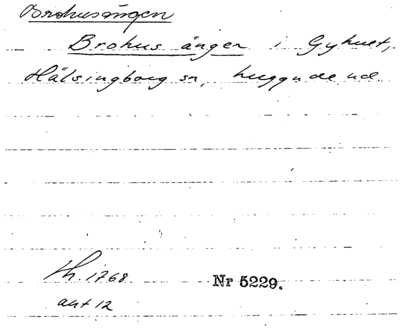 Brohusängen
Brohus änger i Gyhuset,
Hälsingborg sn, huggna de ved
Th. 1768
akt 12
Nr 5229.